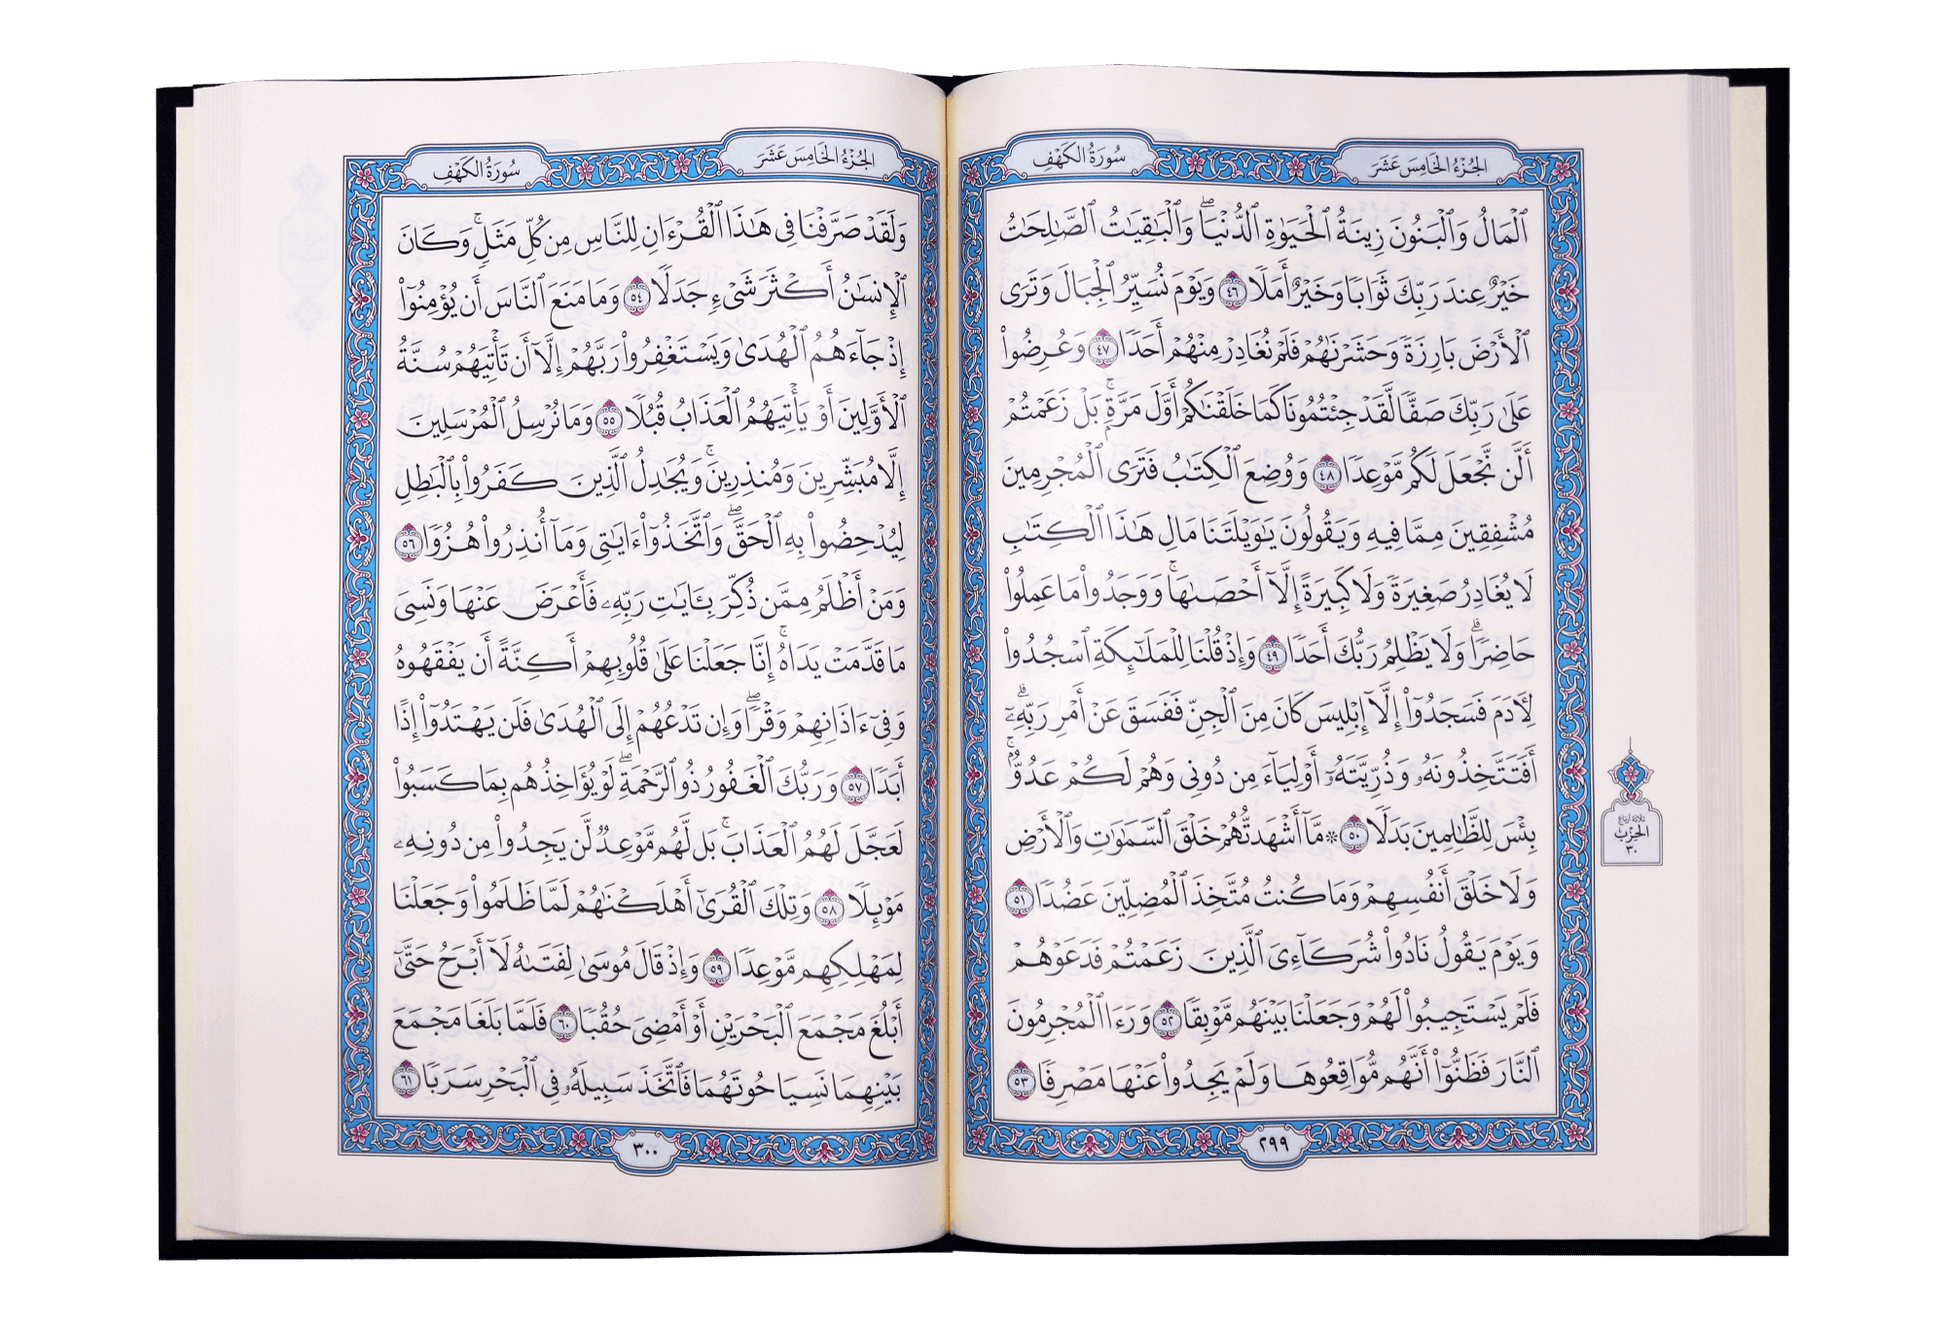 الجُزْءُ الخَامِسَ عَشَرَ
سُورَةُ الكَهْفِ
ٱلْمَالُ وَٱلْبَنُونَ زِينَةُ ٱلْحَيَوٰةِ ٱلدُّنْيَاۖ وَٱلْبَٰقِيَٰتُ ٱلصَّٰلِحَٰتُ
خَيْرٌ عِندَ رَبِّكَ ثَوَابًا وَخَيْرٌ أَمَلًا ٤٦ وَيَوْمَ نُسَيِّرُ ٱلْجِبَالَ وَتَرَى
ٱلْأَرْضَ بَارِزَةً وَحَشَرْنَٰهُمْ فَلَمْ نُغَادِرْ مِنْهُمْ أَحَدًا ٤٧ وَعُرِضُوا۟
عَلَىٰ رَبِّكَ صَفًّا لَّقَدْ جِئْتُمُونَا كَمَا خَلَقْنَٰكُمْ أَوَّلَ مَرَّةٍۭۚ بَلْ زَعَمْتُمْ
أَلَّن نَّجْعَلَ لَكُم مَّوْعِدًا ٤٨ وَوُضِعَ ٱلْكِتَٰبُ فَتَرَى ٱلْمُجْرِمِينَ
مُشْفِقِينَ مِمَّا فِيهِ وَيَقُولُونَ يَٰوَيْلَتَنَا مَالِ هَٰذَا ٱلْكِتَٰبِ
لَا يُغَادِرُ صَغِيرَةً وَلَا كَبِيرَةً إِلَّآ أَحْصَىٰهَاۚ وَوَجَدُوا۟ مَا عَمِلُوا۟
حَاضِرًاۗ وَلَا يَظْلِمُ رَبُّكَ أَحَدًا ٤٩ وَإِذْ قُلْنَا لِلْمَلَٰٓئِكَةِ ٱسْجُدُوا۟
لِـَٔادَمَ فَسَجَدُوٓا۟ إِلَّآ إِبْلِيسَ كَانَ مِنَ ٱلْجِنِّ فَفَسَقَ عَنْ أَمْرِ رَبِّهِۦٓۗ
أَفَتَتَّخِذُونَهُۥ وَذُرِّيَّتَهُۥٓ أَوْلِيَآءَ مِن دُونِى وَهُمْ لَكُمْ عَدُوٌّۢۚ
بِئْسَ لِلظَّٰلِمِينَ بَدَلًا ٥٠ ۞ مَّآ أَشْهَدتُّهُمْ خَلْقَ ٱلسَّمَٰوَٰتِ وَٱلْأَرْضِ
وَلَا خَلْقَ أَنفُسِهِمْ وَمَا كُنتُ مُتَّخِذَ ٱلْمُضِلِّينَ عَضُدًا ٥١
وَيَوْمَ يَقُولُ نَادُوا۟ شُرَكَآءِىَ ٱلَّذِينَ زَعَمْتُمْ فَدَعَوْهُمْ
فَلَمْ يَسْتَجِيبُوا۟ لَهُمْ وَجَعَلْنَا بَيْنَهُم مَّوْبِقًا ٥٢ وَرَءَا ٱلْمُجْرِمُونَ
ٱلنَّارَ فَظَنُّوٓا۟ أَنَّهُم مُّوَاقِعُوهَا وَلَمْ يَجِدُوا۟ عَنْهَا مَصْرِفًا ٥٣
٢٩٩
ثلاثة أرباع
الحزب
٣٠
الجُزْءُ الخَامِسَ عَشَرَ
سُورَةُ الكَهْفِ
وَلَقَدْ صَرَّفْنَا فِى هَٰذَا ٱلْقُرْءَانِ لِلنَّاسِ مِن كُلِّ مَثَلٍۚ وَكَانَ
ٱلْإِنسَٰنُ أَكْثَرَ شَىْءٍ جَدَلًا ٥٤ وَمَا مَنَعَ ٱلنَّاسَ أَن يُؤْمِنُوٓا۟
إِذْ جَآءَهُمُ ٱلْهُدَىٰ وَيَسْتَغْفِرُوا۟ رَبَّهُمْ إِلَّآ أَن تَأْتِيَهُمْ سُنَّةُ
ٱلْأَوَّلِينَ أَوْ يَأْتِيَهُمُ ٱلْعَذَابُ قُبُلًا ٥٥ وَمَا نُرْسِلُ ٱلْمُرْسَلِينَ
إِلَّا مُبَشِّرِينَ وَمُنذِرِينَۚ وَيُجَٰدِلُ ٱلَّذِينَ كَفَرُوا۟ بِٱلْبَٰطِلِ
لِيُدْحِضُوا۟ بِهِ ٱلْحَقَّۖ وَٱتَّخَذُوٓا۟ ءَايَٰتِى وَمَآ أُنذِرُوا۟ هُزُوًا ٥٦
وَمَنْ أَظْلَمُ مِمَّن ذُكِّرَ بِـَٔايَٰتِ رَبِّهِۦ فَأَعْرَضَ عَنْهَا وَنَسِىَ
مَا قَدَّمَتْ يَدَاهُۚ إِنَّا جَعَلْنَا عَلَىٰ قُلُوبِهِمْ أَكِنَّةً أَن يَفْقَهُوهُ
وَفِىٓ ءَاذَانِهِمْ وَقْرًاۖ وَإِن تَدْعُهُمْ إِلَى ٱلْهُدَىٰ فَلَن يَهْتَدُوٓا۟ إِذًا
أَبَدًا ٥٧ وَرَبُّكَ ٱلْغَفُورُ ذُو ٱلرَّحْمَةِۖ لَوْ يُؤَاخِذُهُم بِمَا كَسَبُوا۟
لَعَجَّلَ لَهُمُ ٱلْعَذَابَۚ بَل لَّهُم مَّوْعِدٌ لَّن يَجِدُوا۟ مِن دُونِهِۦ
مَوْئِلًا ٥٨ وَتِلْكَ ٱلْقُرَىٰٓ أَهْلَكْنَٰهُمْ لَمَّا ظَلَمُوا۟ وَجَعَلْنَا
لِمَهْلِكِهِم مَّوْعِدًا ٥٩ وَإِذْ قَالَ مُوسَىٰ لِفَتَىٰهُ لَآ أَبْرَحُ حَتَّىٰٓ
أَبْلُغَ مَجْمَعَ ٱلْبَحْرَيْنِ أَوْ أَمْضِىَ حُقُبًا ٦٠ فَلَمَّا بَلَغَا مَجْمَعَ
بَيْنِهِمَا نَسِيَا حُوتَهُمَا فَٱتَّخَذَ سَبِيلَهُۥ فِى ٱلْبَحْرِ سَرَبًا ٦١
٣٠٠